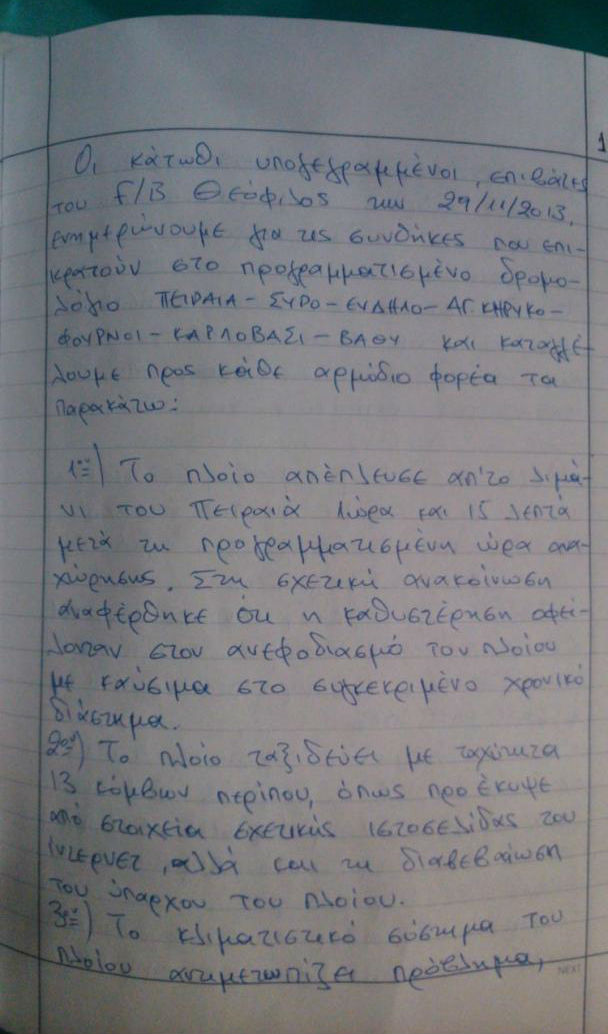 1
Οι κάτωθι υπογεγραμμένοι, επιβάτες
του F/B Θεόφιλος την 29/11/2013,
ενημερώνουμε για τις συνθήκες που επι-
κρατούν στο προγραμματισμένο δρομο-
λόγιο ΠΕΙΡΑΙΑ - ΣΥΡΟ - ΕΥΔΗΛΟ - ΑΓ. ΚΗΡΥΚΟ -
ΦΟΥΡΝΟΙ - ΚΑΡΛΟΒΑΣΙ - ΒΑΘΥ και καταγγέ-
λουμε προς κάθε αρμόδιο φορέα τα
παρακάτω:
1ον) Το πλοίο απέπλευσε απ'το λιμά-
νι του Πειραιά 1ώρα και 15 λεπτά
μετά τη προγραμματισμένη ώρα ανα-
χώρησης. Στη σχετική ανακοίνωση
αναφέρθηκε ότι η καθυστέρηση οφεί-
λονταν στον ανεφοδιασμό του πλοίου
με καύσιμα στο συγκεκριμένο χρονικό
διάστημα.
2ον) Το πλοίο ταξιδεύει με ταχύτητα
13 κόμβων περίπου, όπως προέκυψε
από στοιχεία σχετικής ιστοσελίδας του
ίντερνετ, αλλά και τη διαβεβαίωση
του ύπαρχου του πλοίου.
3ον) Το κλιματιστικό σύστημα του
πλοίου αντιμετωπίζει πρόβλημα,
NEXT